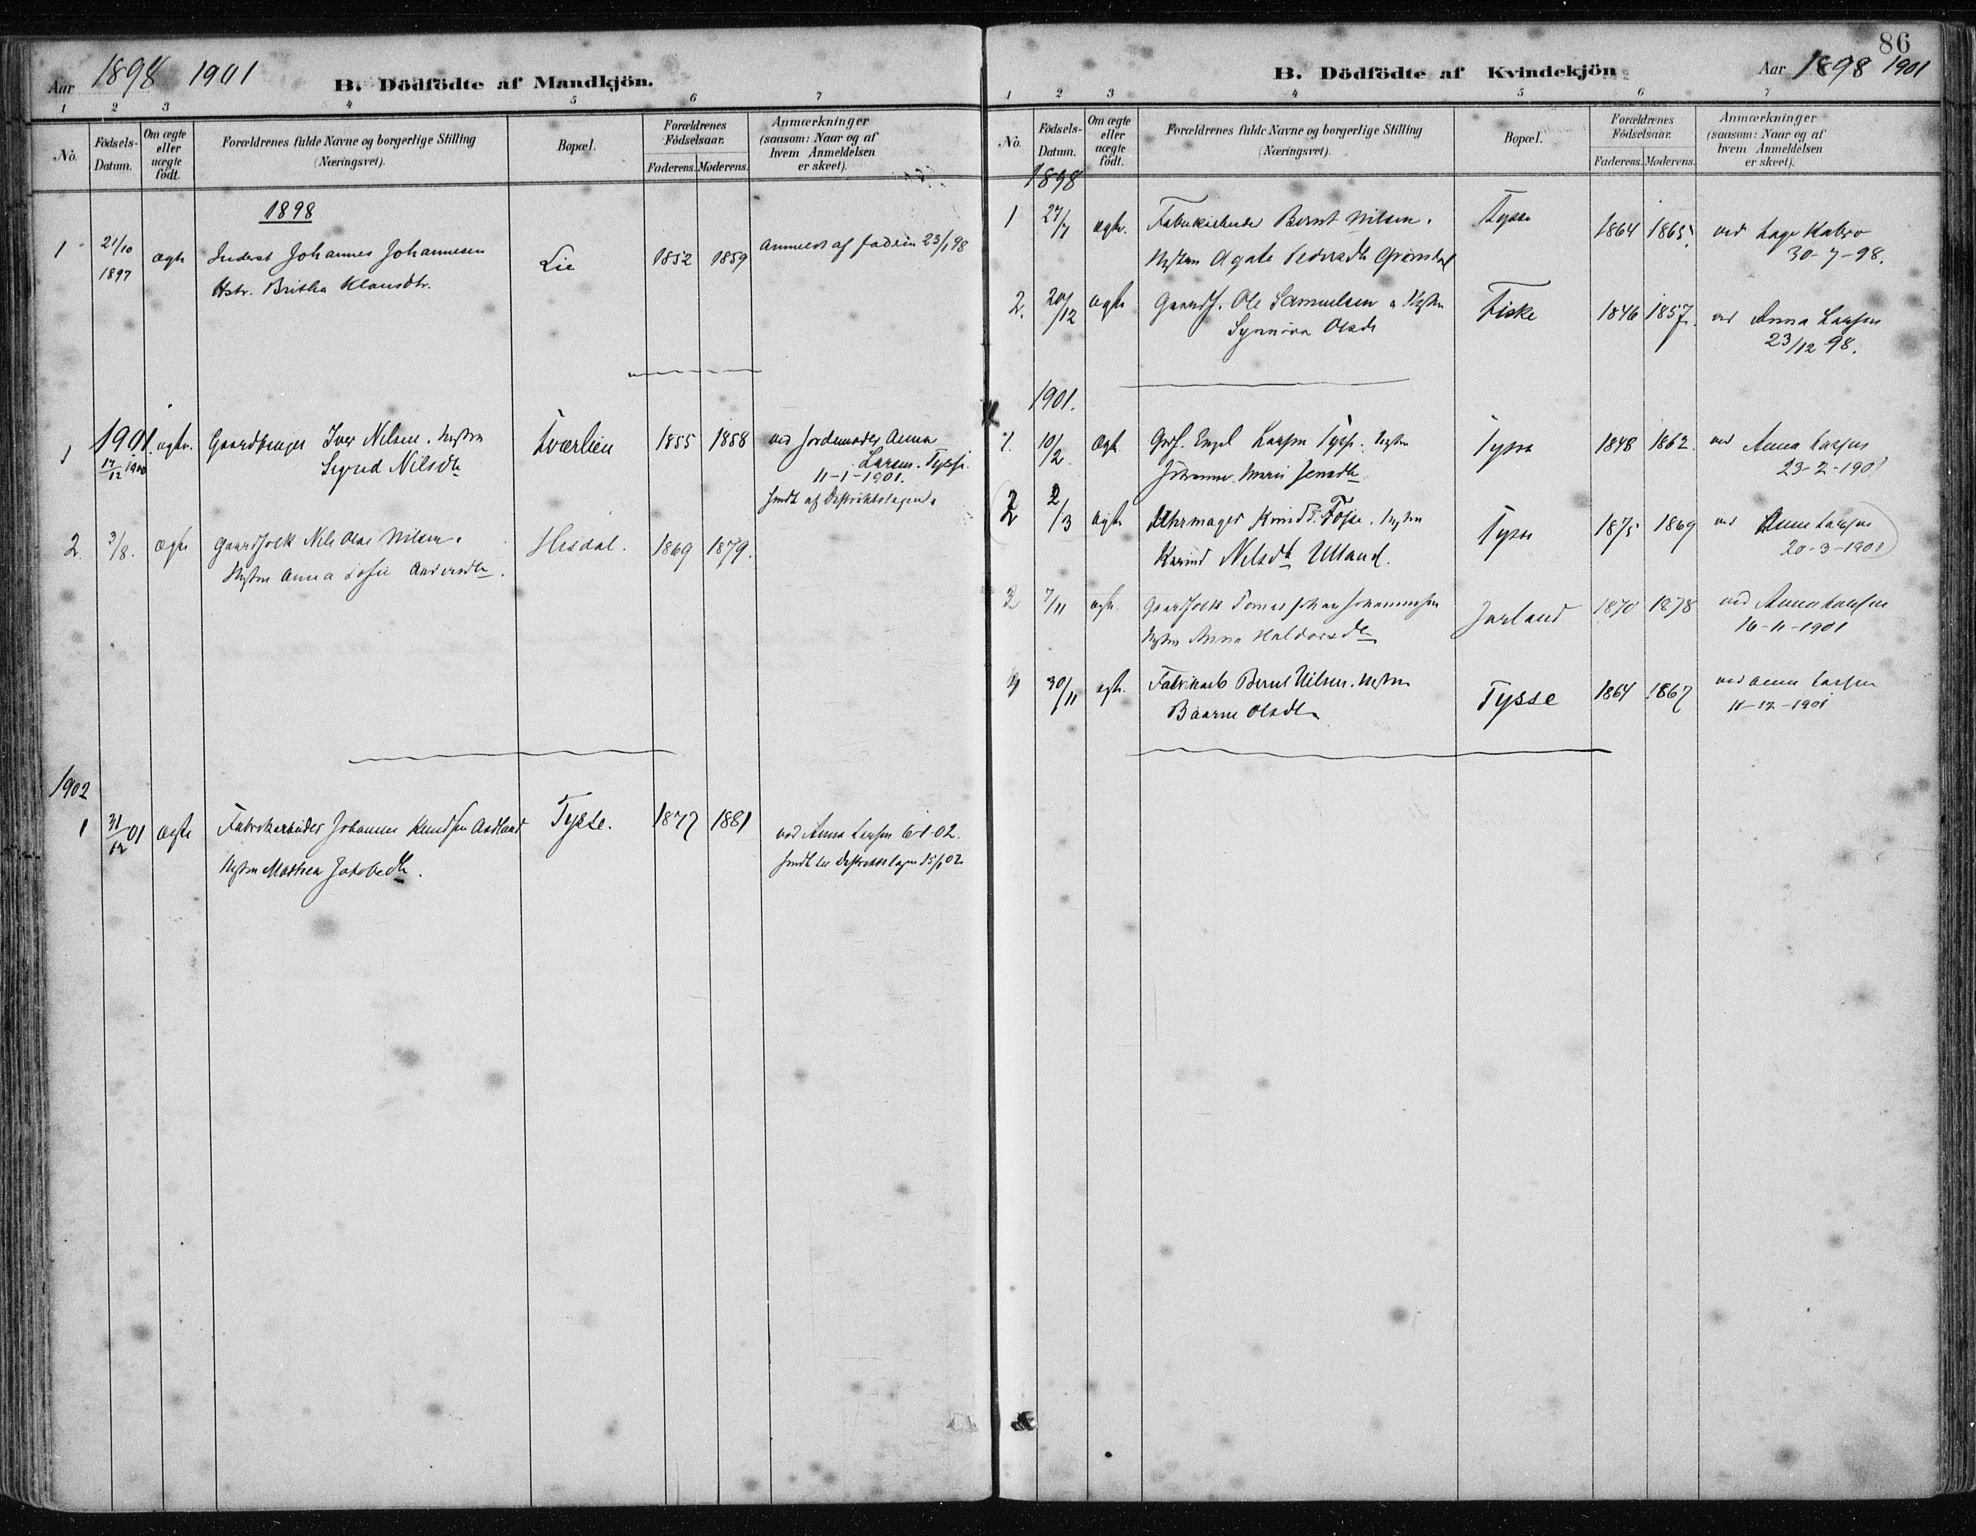 Aar 1898 1901
B. Dödfödte af Mandkjön.
1 2 3 4 5 6 7
No.
Födsels-
Datum.
Om ægte
eller
uægte
födt.
Forældrenes fulde Navne og borgerlige Stilling
(Næringsvei).
Bopæl.
Forældrenes
Födselsaar.
Faderens. Moderens.
Anmærkninger
(saasom: Naar og af
hvem Anmeldelsen
er skeet).
1898
1 21/10 ægte Inderst Johannes Johannesen Lie 1852 1859 Anmeldt af faderen 23/1 98
1897 Hstr. Britha Klausdtr.
1901
1 17/12 1900 ægte. Gaardbruger Iver Nilsen. Hustru Tværlien 1855 1858 ved Jordemoder Anna
Sigrid Nilsdtr Larsen. Tysse
11-1-1901.
sendt af Distriktslægen.
2. 3/8. ægte Gaardfolk Nils Olai Nilsen. Hisdal. 1869 1879.
Hustru Anna Sofie Andersdtr.
1902
1 31/12 01 ægte Fabrikarbeider Johannes Knudsen Aadland Tysse. 1877 1881 ved Anna Larsen 6-1-02.
Hustru Mathea Jakobsdtr. sendt til Distriktslægen 15/1 02
86
B. Dödfödte af Kvindekjön
Aar 1898 1901
1 2 3 4 5 6 7
No.
Födsels-
Datum.
Om ægte
eller
uægte
födt.
Forældrenes fulde Navne og borgerlige Stilling
(Næringsvei).
Bopæl.
Forældrenes
Födselsaar.
Faderens. Moderens.
Anmærkninger
(saasom: Naar og af
hvem Anmeldelsen
er skeet).
1898
1 27/7 ægte. Fabrikarbeider Bernt Nilsen. Tysse 1864 1865. ved
Hustru Agate Pedersdtr 30-7-98.
2. 20/12 ægte Gaardf. Ole Samuelsen o Hustru Fiske 1846 1857. ved Anna Larsen
Synnöva Olsdtr 23/12 98.
1901.
1. 10/2. ægte Grdf. Engel Larsen Tysse. Hustru Tysse 1848 1862. ved Anna Larsen
Johanne Marie Jensdtr 23-2-1901
2 2/3 ægte Uhrmager Knud T. Fosse. Hustru Tysse 1875 1869 ved Anna Larsen
Karind Nilsdtr Ulland. 20-3-1901
3 7/11 ægte. Gaardfolk Tomas Johan Johannessen Jarland 1870 1878 ved Anna Larsen
Hustru Anna Haldorsdtr 16-11-1901
4 30/11 ægte. Fabrikarb Bernt Nilsen. Hustru Tysse 1864 1867 ved Anna Larsen
Baarne Olsdtr 11-12-1901